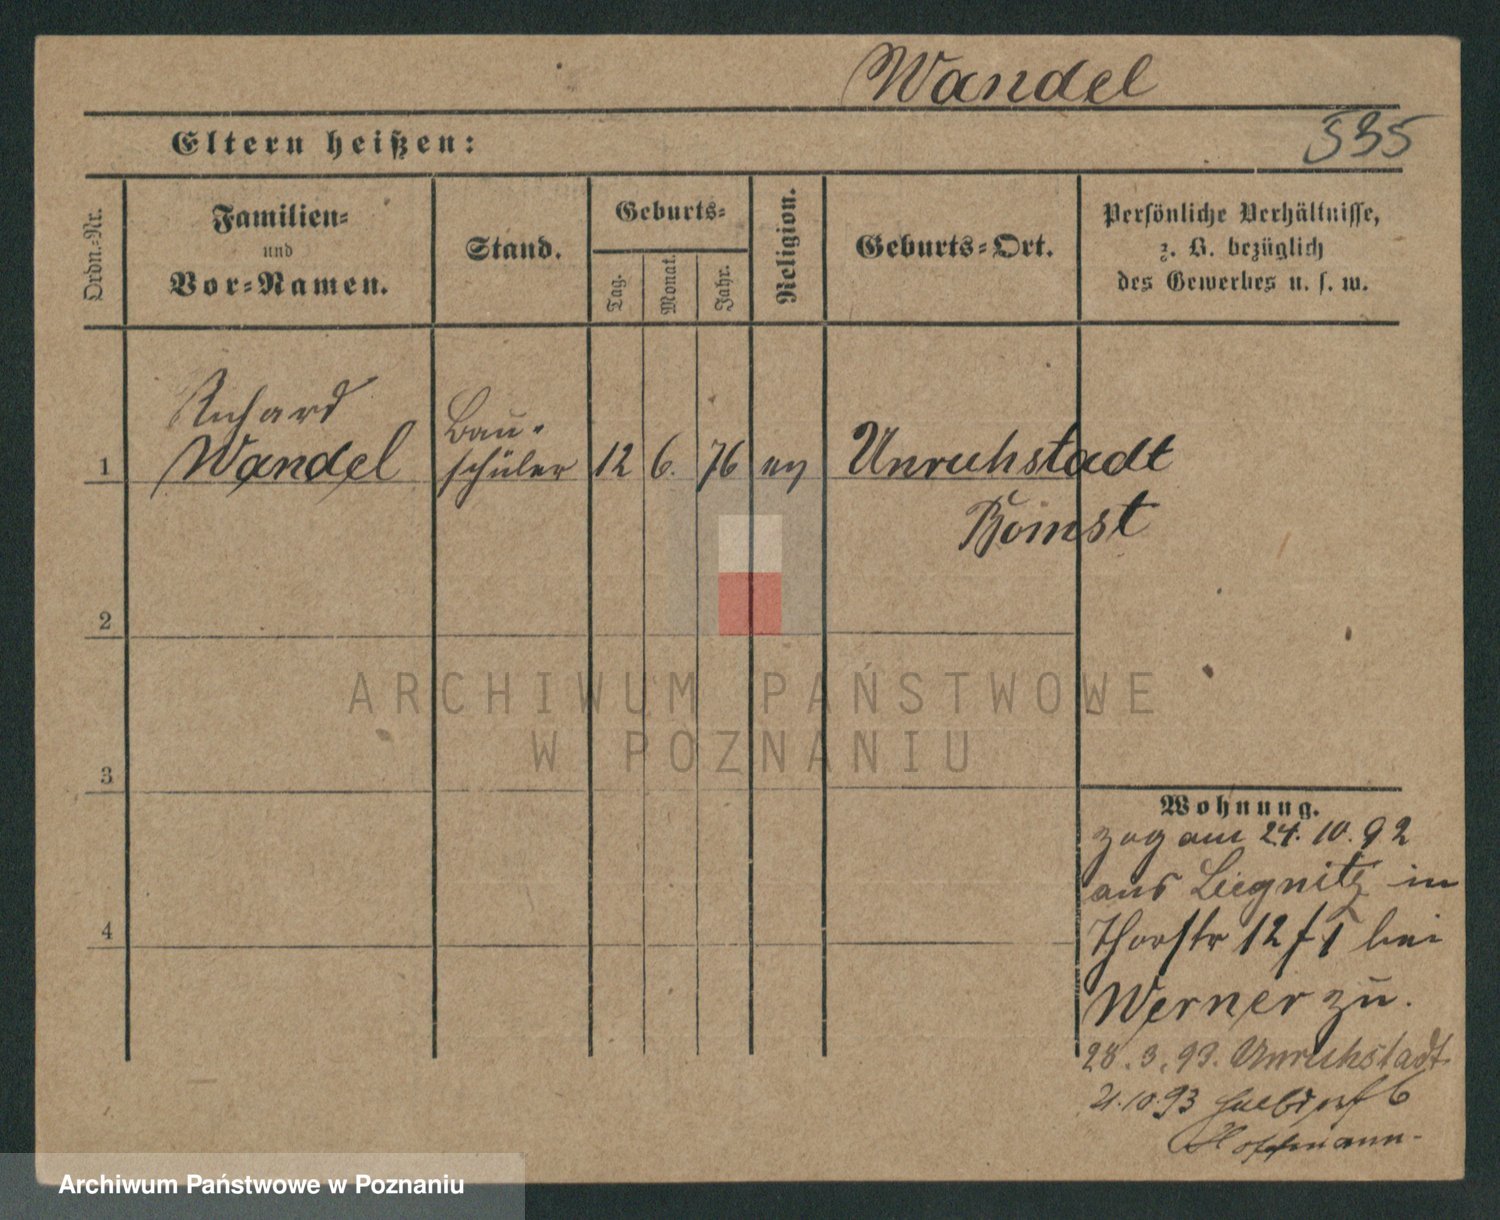 Wandel
Eltern heißen:
535
Ordn.=Nr.
Familien=
und
Vor=Namen.
Stand.
Geburts=
Tag.
Monat.
Jahr.
Religion.
Geburts=Ort.
Persönliche Verhältnisse,
z. B. bezüglich
des Gewerbes u. s. w.
Richard
Wandel
Bau-
schüler
1
12
6.
76
ev
Unruhstadt
Bomst
2
3
4
Wohnung.
zog am 24. 10. 92
aus Liegnitz in
Thorstr 12 f I bei
Werner zu.
28. 3. 93. Unruhstadt
21. 10. 93
6
Hoffmann.
ARCHIWUM PAŃSTWOWE
W POZNANIU
Archiwum Państwowe w Poznaniu